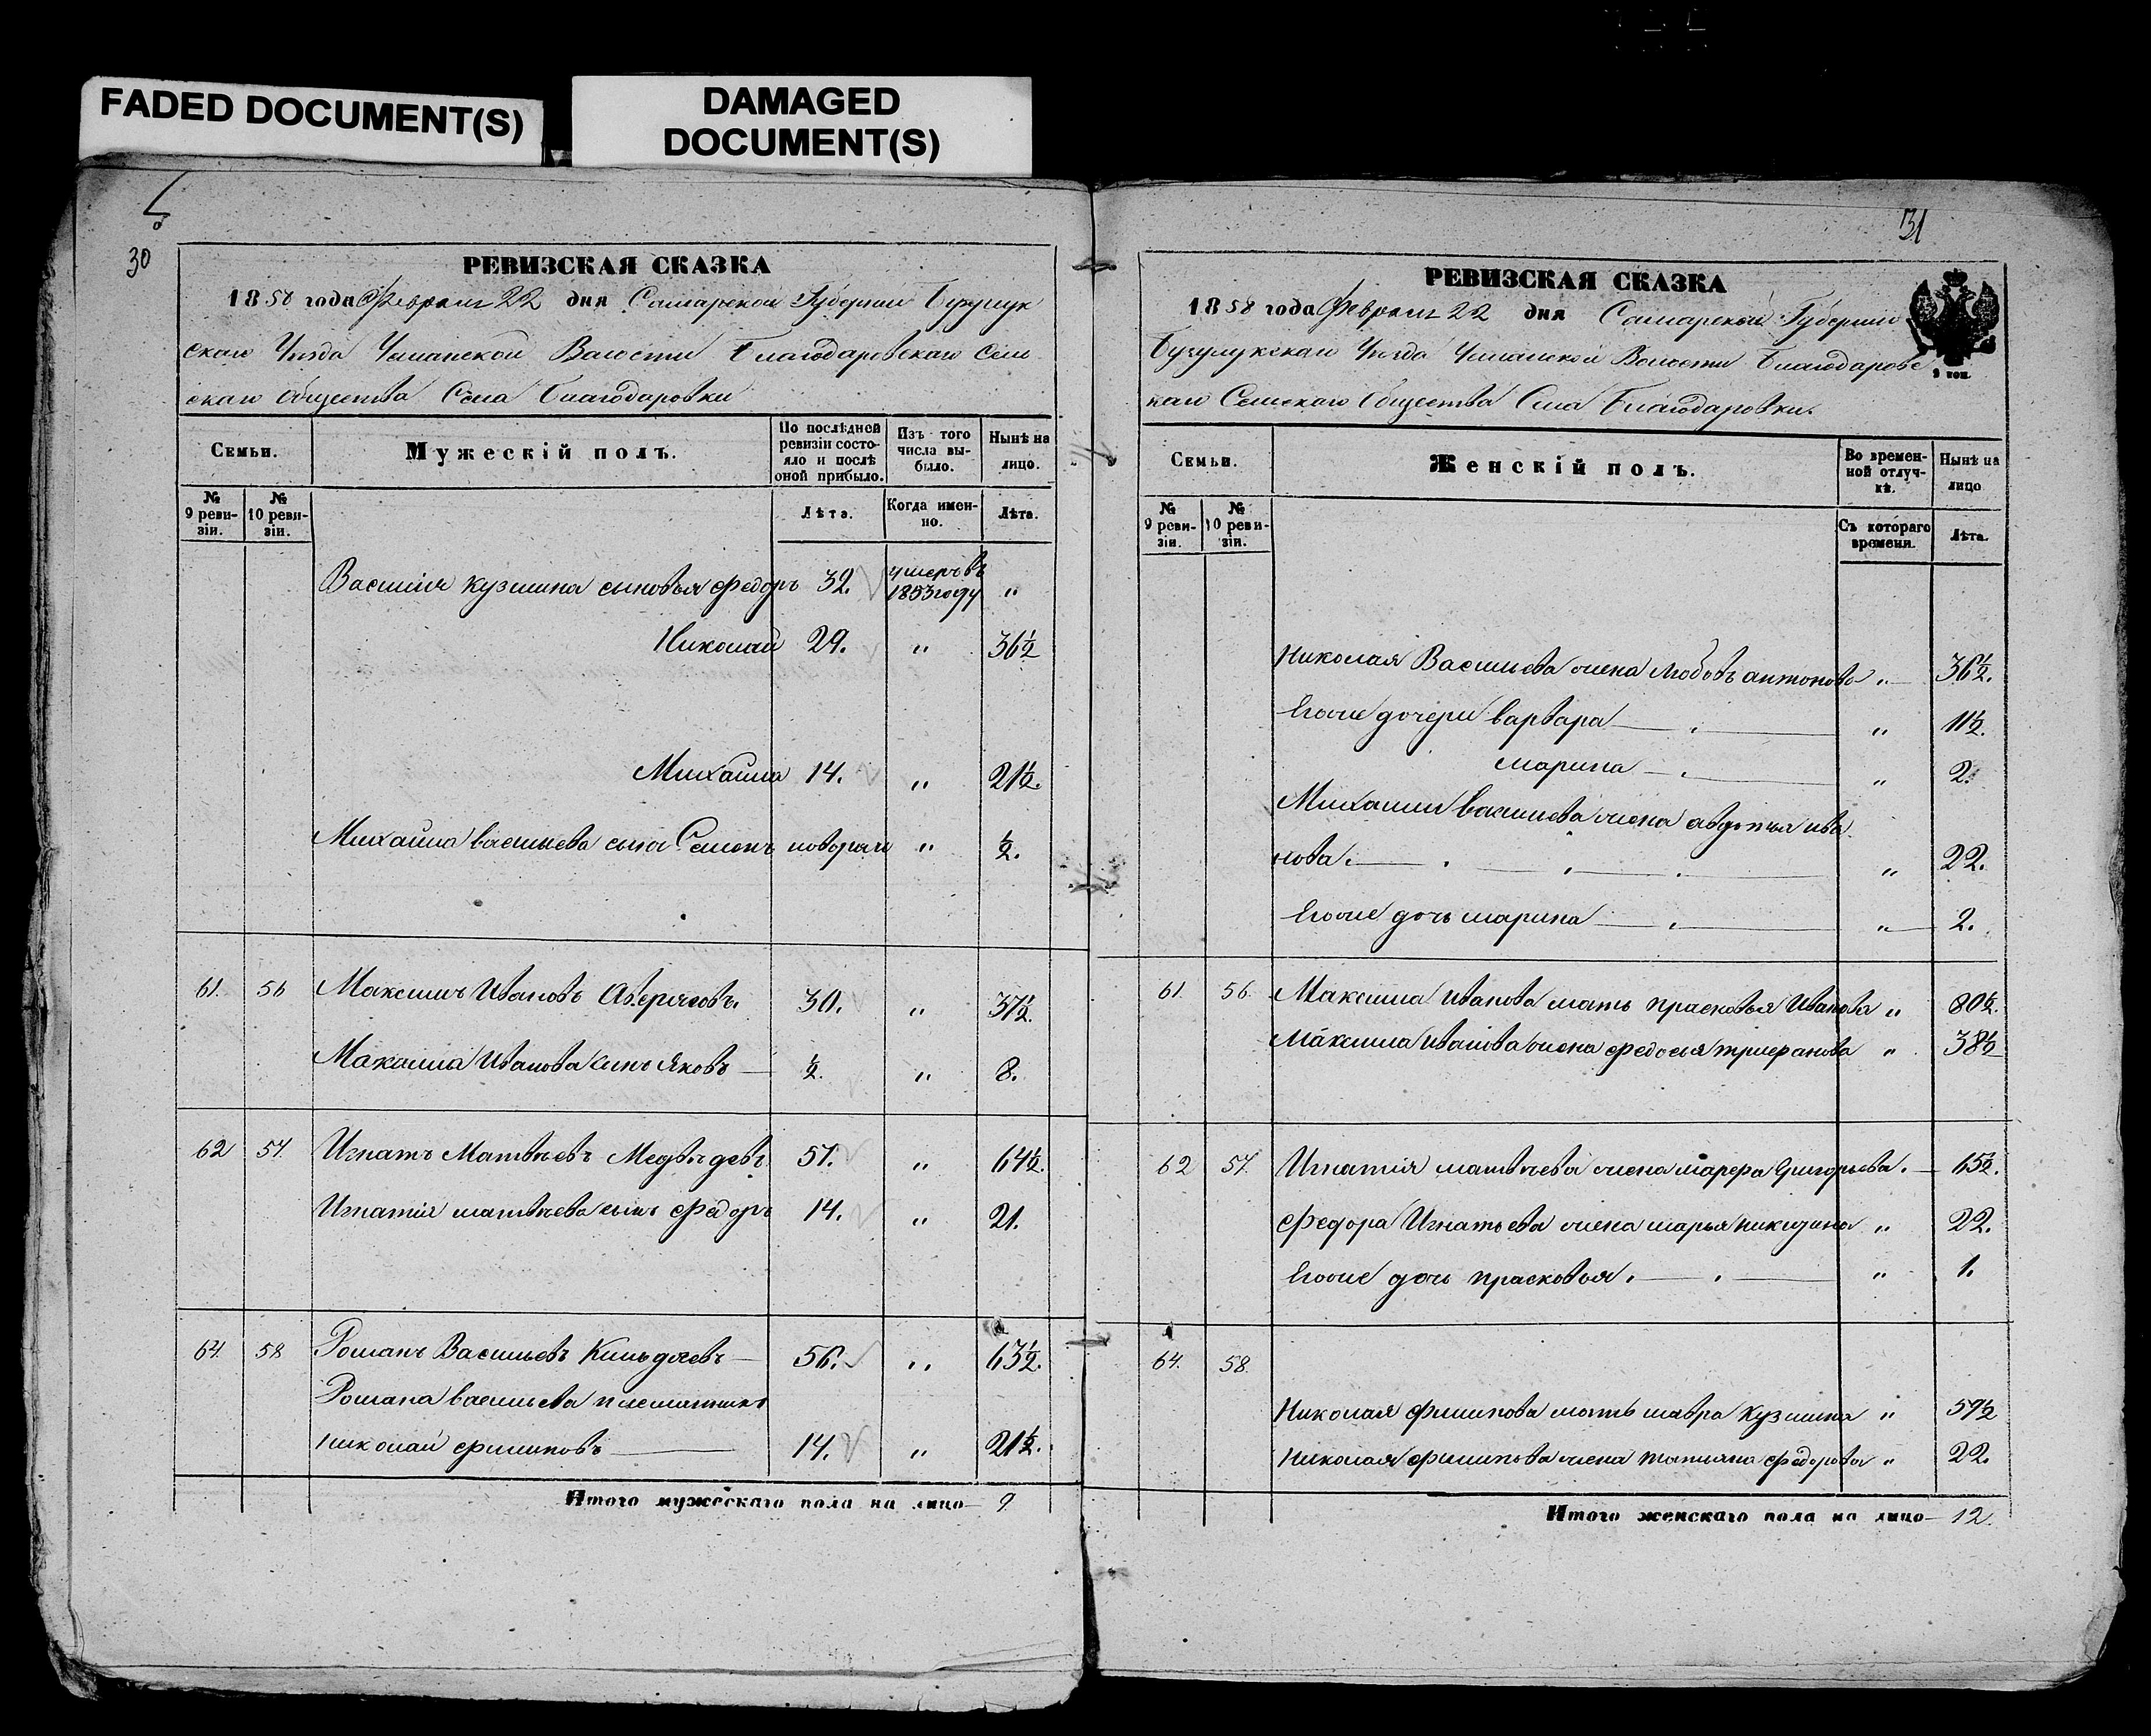 FADED DOCUMENT(S)
DAMAGED
DOCUMENT(S)
30
РЕВИЗСКАЯ СКАЗКА
1858 года Февраля 22 дня Самарской Губернии Бузулук
скаго Уезда Волости Благодаровскаго Сель
скаго Общества Села Благодаровки
Семьи.
Мужескій полъ.
По послѣдней
ревизіи состо-
яло и послѣ
оной прибыло.
Изъ того
числа вы-
было.
Нынѣ на
лицо.
№
9 реви-
зіи.
№
10 реви-
зіи.
Лѣта.
Когда имен-
но.
Лѣта.
Василия Кузмина сыновья Федоръ 32. умеръ въ 1853 году „
Николай 29. „ 36½
Михайла 14. „ 21½.
Михайла Васильева сынъ Семенъ новорож „ ½.
61. 56 Максимъ Ивановъ 30. „ 37½.
Максима Иванова сынъ Яковъ ½. „ 8.
62 57. Игнатъ Матвѣевъ Медвѣдевъ 57. „ 64½.
Игнатія Матвѣева сынъ Федоръ 14. „ 21.
64. 58 Романъ Васильевъ 56. „ 63½.
Романа Васильева племянникъ
Николай Филиповъ 14. „ 21½.
Итого мужескаго пола на лицо 9
31
РЕВИЗСКАЯ СКАЗКА
1858 года Февраля 22 дня Самарской Губернии
Бузулукскаго Уезда Волости Благодаровс
каго Сельскаго Общества Села Благодаровки.
Семьи.
Женскій полъ.
Во времен-
ной отлуч-
кѣ.
Нынѣ на
лицо
№
9 реви-
зіи.
№
10 реви-
зіи.
Съ котораго
времени.
Лѣта.
Николая Васильева жена Любовь Антонова „ 36½.
Егоже дочери Варвара „ 11½.
Марина „ 2.
Михаила Васильева жена Авдотья Ива
нова. „ 22.
Егоже дочь Марина „ 2.
61. 56. Максима Иванова мать Прасковья Иванова „ 80½.
Максима Иванова жена Федосья Трифанова „ 38½
62 57. Игнатія Матвѣева жена Марфа Григорьева. 65½.
Федора Игнатьева жена Марья Никитина „ 22.
Егоже дочь Прасковья. „ 1.
64. 58.
Николая Филипова мать Мавра Кузмина „ 59½
Николая Филипова жена Татьяна Федорова „ 22.
Итого женскаго пола на лицо 12.